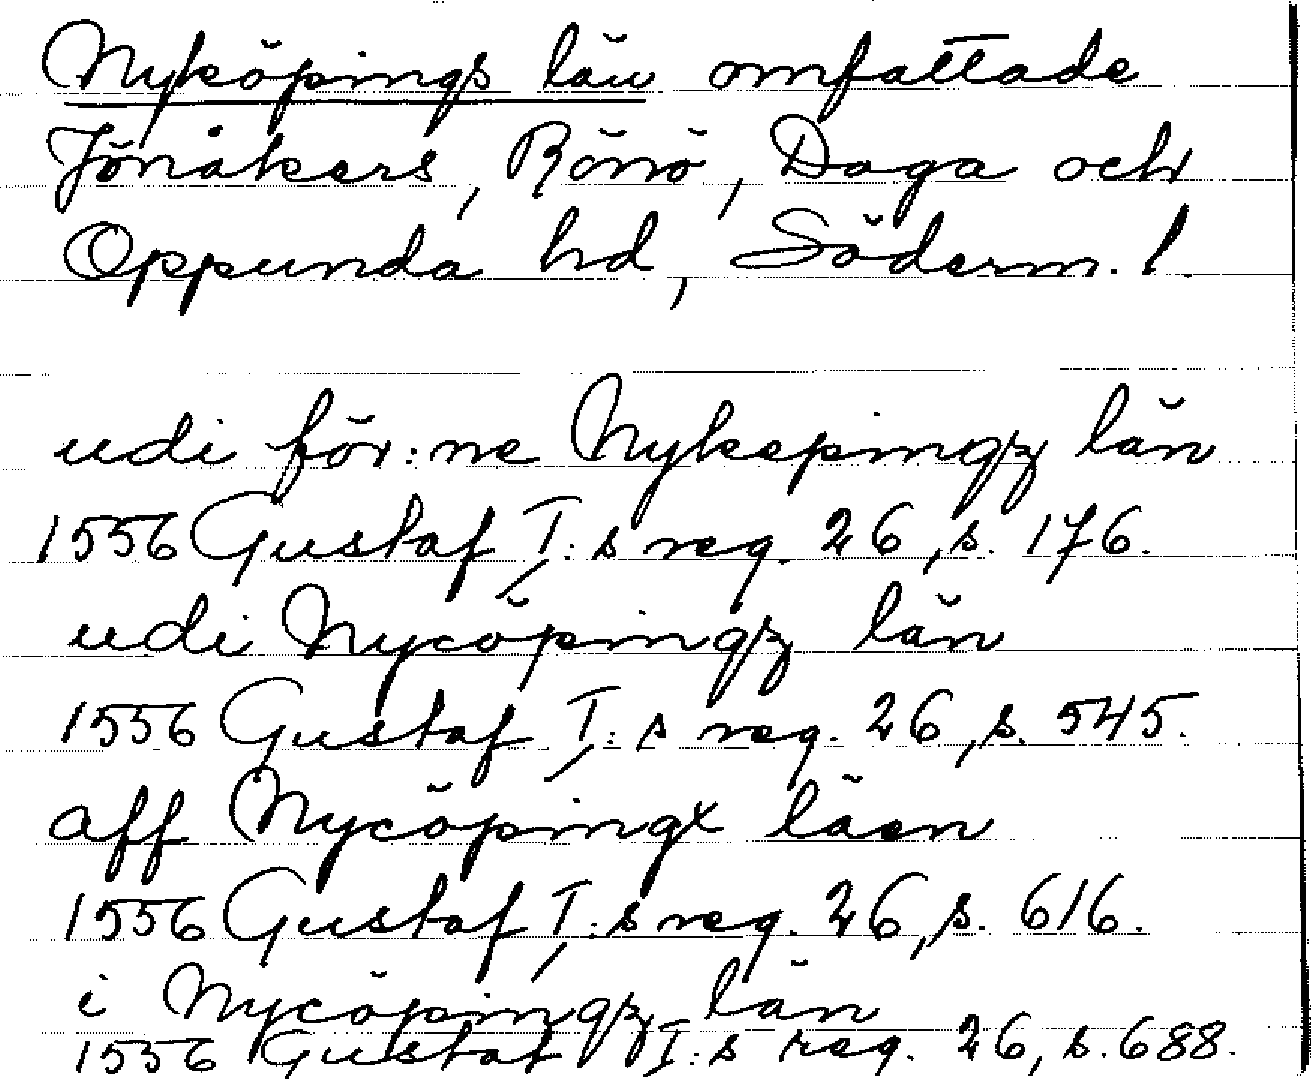 Nyköpings län omfattade
Jönåkers, Rönö, Daga och
Oppunda hd, Söderm. l.
udi för:ne Nykepingz län
1556 Gustaf I:s reg. 26, s. 176.
udi Nycöpingz län
1556 Gustaf I:s reg. 26, s. 545.
aff Nycöpingx läen
1556 Gustaf I:s reg. 26, s. 616.
i Nycöpingz län
1556 Gustaf I:s reg. 26, s. 688.